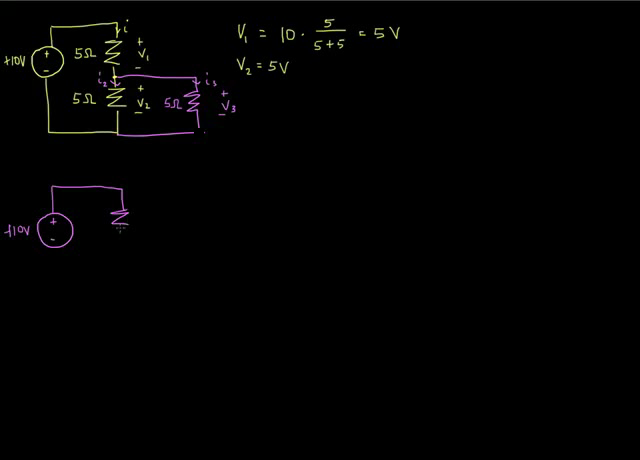 i
+10V
+
-
5Ω
+
V₁
-
i₂
i₃
5Ω
+
V₂
-
5Ω
+
V₃
-
V₁ = 10 · 5 / (5+5) = 5 V
V₂ = 5V
+10V
+
-